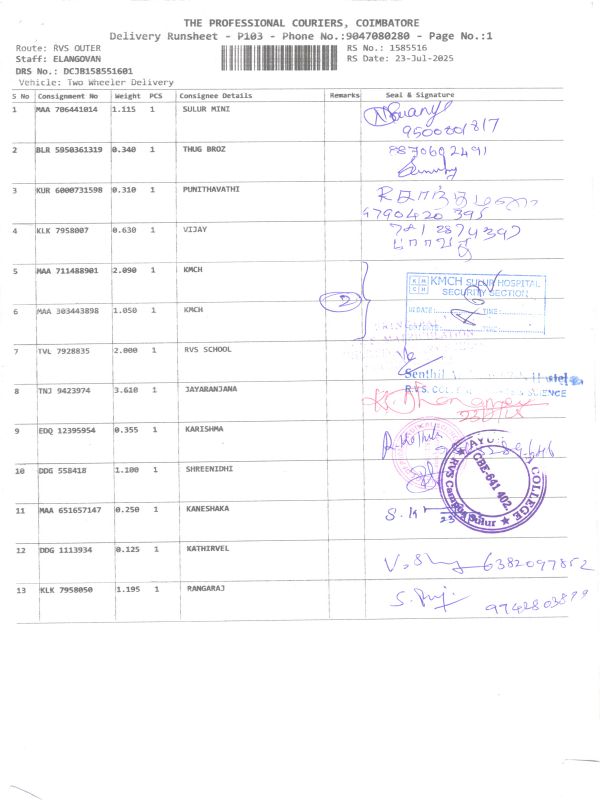 THE PROFESSIONAL COURIERS, COIMBATORE
Delivery Runsheet - P103 - Phone No.:9047080280 - Page No.:1
Route: RVS OUTER
RS No.: 1585516
Staff: ELANGOVAN
RS Date: 23-Jul-2025
DRS No.: DCJB158551601
Vehicle: Two Wheeler Delivery
S No Consignment No Weight PCS Consignee Details Remarks Seal & Signature
1 MAA 706441014 1.115 1 SULUR MINI
9500801817
2 BLR 5950361319 0.340 1 THUG BROZ 8870602491
3 KUR 6000731598 0.310 1 PUNITHAVATHI
4790420395
4 KLK 7958007 0.630 1 VIJAY
5 MAA 711488901 2.090 1 KMCH
KMCH SULUR HOSPITAL
SECURITY SECTION
2
6 MAA 303443898 1.050 1 KMCH
IN DATE: TIME:
TIME:
7 TVL 7928835 2.000 1 RVS SCHOOL
Senthil
8 TNJ 9423974 3.610 1 JAYARANJANA
9 EDQ 12395954 0.355 1 KARISHMA
10 DDG 558418 1.100 1 SHREENIDHI
COLLEGE
CBE-641 402.
RVS Campus Sulur
11 MAA 651657147 0.250 1 KANESHAKA
12 DDG 1113934 0.125 1 KATHIRVEL
6382097852
13 KLK 7958050 1.195 1 RANGARAJ